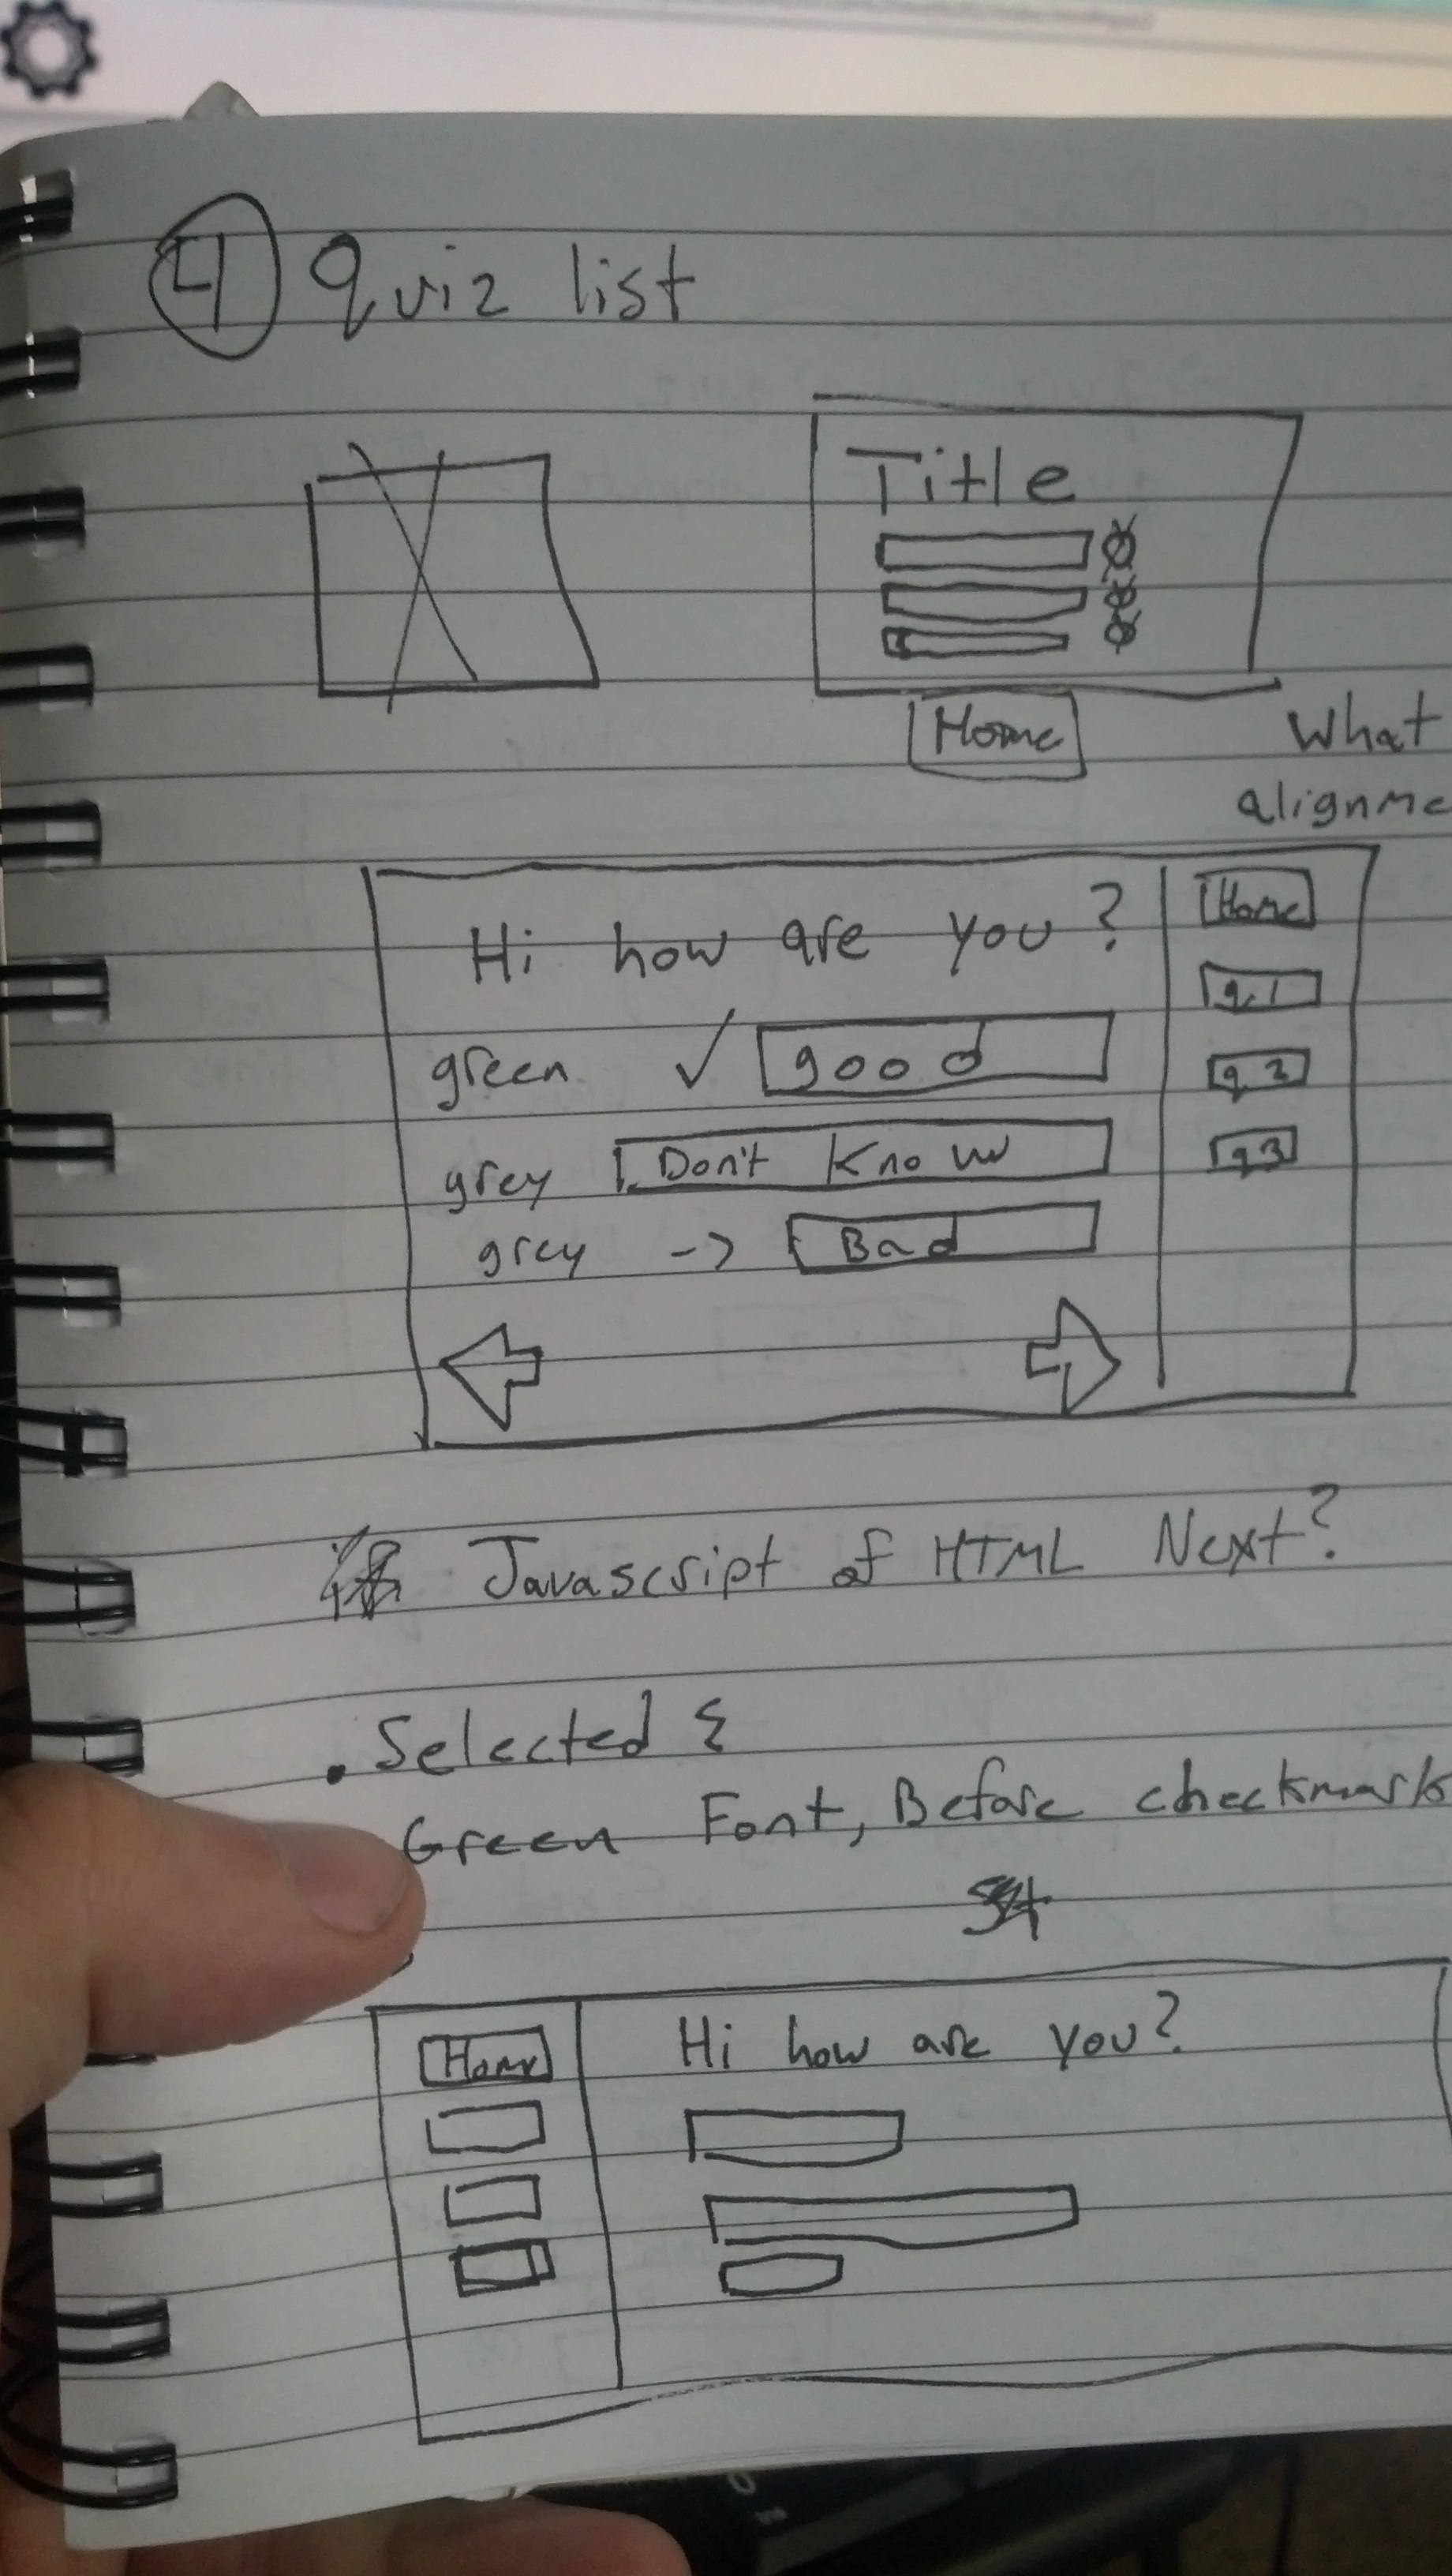 4 Quiz list
Title
Home
What
alignme
Hi how are you?
green ✓ good
grey Don't Know
grey -> Bad
Home
q.1
q.2
q3
Javascript of HTML Next?
. Selected {
Green Font, Before checkmark
Home
Hi how are you?